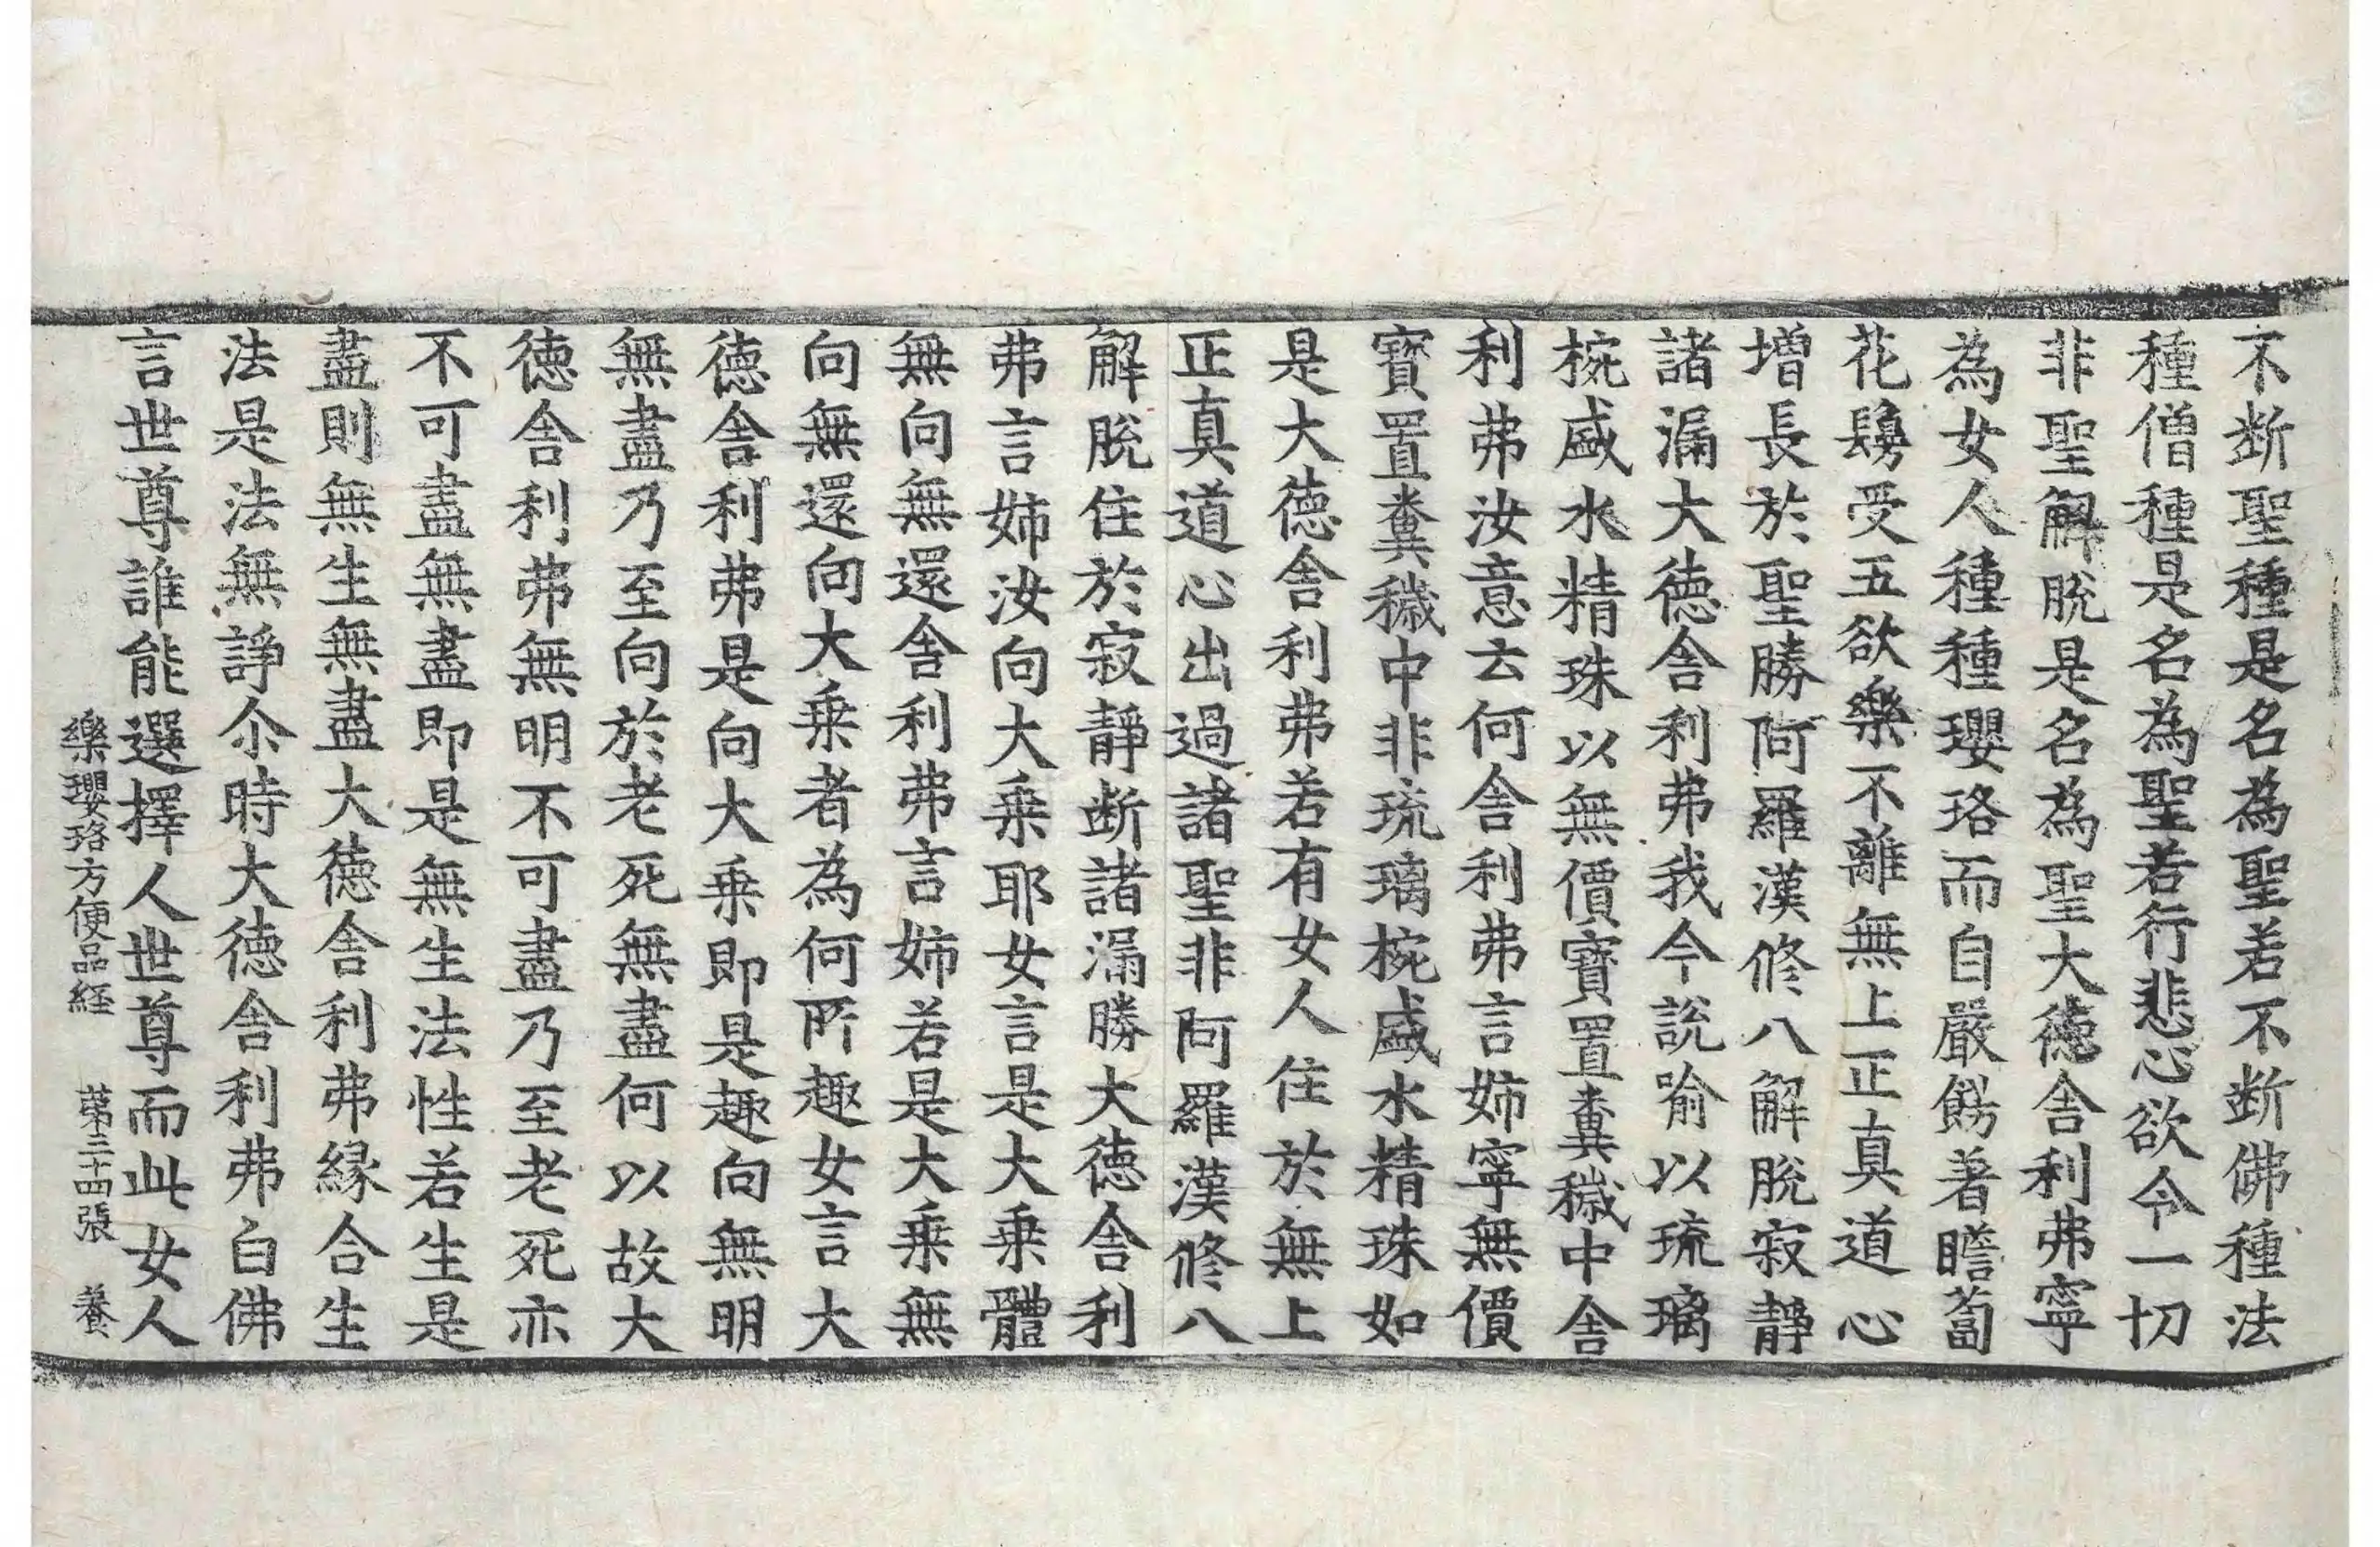 不断聖種是名為聖若不断佛種法
種僧種是名為聖若行悲心欲令一切
非聖解脫是名為聖大德舍利弗寧
為女人種種瓔珞而自嚴餝著瞻蔔
花鬘受五欲樂不離無上正真道心
增長於聖勝阿羅漢修八解脫寂靜
諸漏大德舍利弗我今說喻以琉璃
椀盛水精珠以無價寶置糞穢中舍
利弗汝意云何舍利弗言姉寧無價
寶置糞穢中非琉璃椀盛水精珠如
是大德舍利弗若有女人住於無上
正真道心出過諸聖非阿羅漢修八
解脫住於寂靜断諸漏勝大德舍利
弗言姉汝向大乗耶女言是大乗體
無向無還舍利弗言姉若是大乗無
向無還向大乗者為何所趣女言大
德舍利弗是向大乗即是趣向無明
無盡乃至向於老死無盡何以故大
德舍利弗無明不可盡乃至老死亦
不可盡無盡即是無生法性若生是
盡則無生無盡大德舍利弗緣合生
法是法無諍尒時大德舍利弗白佛
言世尊誰能選擇人世尊而此女人
樂瓔珞方便品経 第三十四張 養